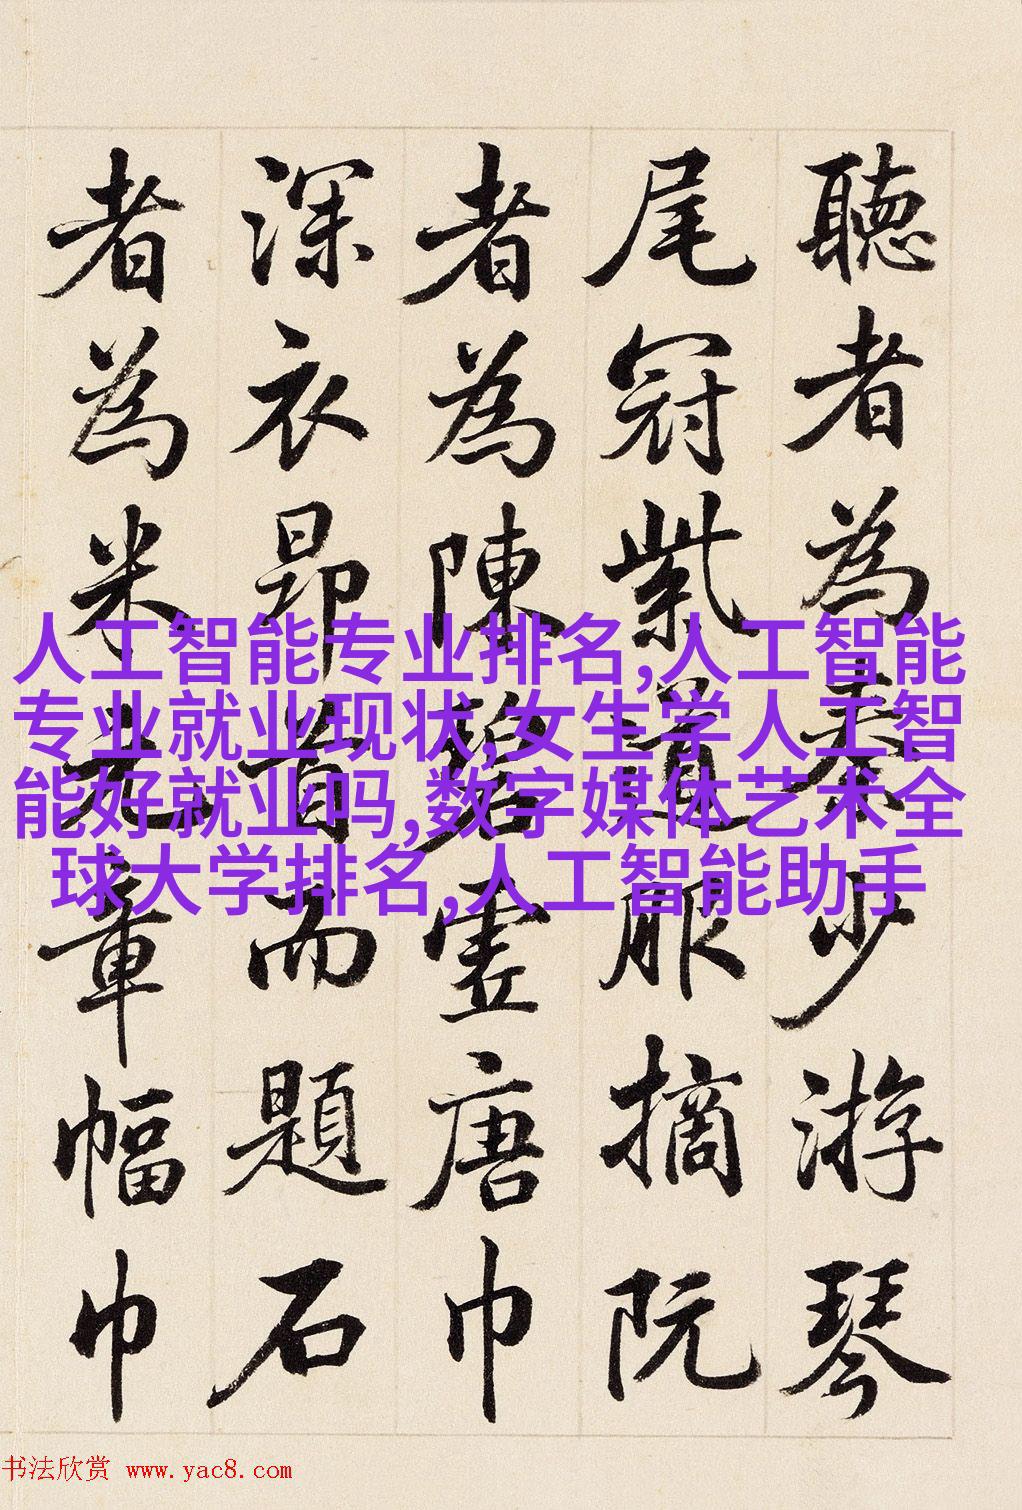 聽者為秦少游琴
尾冠紫道服摘阮
者為陳碧虛唐巾
深衣昂首而題石
者為米元章幅巾
人工智能专业排名,人工智能
专业就业现状,女生学人工智
能好就业吗,数字媒体艺术全
球大学排名,人工智能助手
书法欣赏 www.yac8.com